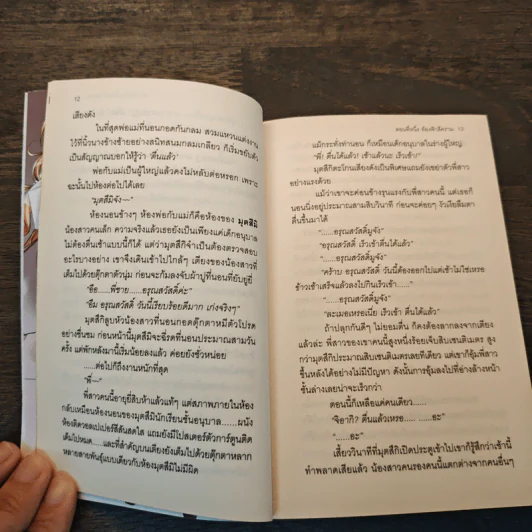 12
เสียงดัง
ในที่สุดพ่อแม่ที่นอนกอดกันกลม สวมแหวนแต่งงาน
ไว้ที่นิ้วนางข้างซ้ายอย่างสนิทสนมกลมเกลียว ก็เริ่มขยับตัว
เป็นสัญญาณบอกให้รู้ว่า ‘ตื่นแล้ว’
พ่อกับแม่เป็นผู้ใหญ่แล้วคงไม่หลับต่อหรอก เพราะ
ฉะนั้นไปห้องต่อไปได้เลย
“มุตสึมิจัง~”
ห้องนอนข้างๆ ห้องพ่อกับแม่ก็คือห้องของ มุตสึมิ
น้องสาวคนเล็ก ความจริงแล้วเธอยังเป็นเพียงแค่เด็กอนุบาล
ไม่ต้องตื่นเช้าแบบนี้ก็ได้ แต่ว่ามุตสึกิจำเป็นต้องตรวจสอบ
อะไรบางอย่าง เขาจึงเดินเข้าไปใกล้ๆ เตียงของน้องสาวที่
เต็มไปด้วยตุ๊กตาตัวนุ่ม ก่อนจะก้มลงจับผ้าปูที่นอนที่ยับยู่ยี่
“อือ.....พี่ชาย.....อรุณสวัสดิ์ค่ะ”
“อืม อรุณสวัสดิ์ วันนี้เรียบร้อยดีมาก เก่งจริงๆ”
มุตสึกิลูบหัวน้องสาวที่นอนกอดตุ๊กตาหมีตัวโปรด
อย่างชื่นชม ก่อนหน้านี้มุตสึมิจะฉี่รดที่นอนประมาณสามวัน
ครั้ง แต่พักหลังมานี้เริ่มน้อยลงแล้ว ค่อยยังชั่วหน่อย
.....ต่อไปก็ถึงงานหน้าที่สุด
“พี่~”
พี่สาวคนนี้อายุยี่สิบห้าแล้วแท้ๆ แต่สภาพภายในห้อง
กลับเหมือนห้องนอนของมุตสึมินักเรียนชั้นอนุบาล......ผนัง
ห้องติดวอลเปเปอร์สีสันสดใส แถมยังมีโปสเตอร์ตัวการ์ตูนติด
เต็มไปหมด.....และที่สำคัญบนเตียงยังเต็มไปด้วยตุ๊กตาหลาก
หลายสายพันธุ์แบบเดียวกับห้องมุตสึมิไม่มีผิด
ตอนที่หนึ่ง 13
แม้กระทั่งท่านอน ก็เหมือนเด็กอนุบาลในร่างผู้ใหญ่
“พี่! ตื่นได้แล้ว! เช้าแล้วนะ เร็วเข้า!”
มุตสึกิตะโกนเสียงดังเป็นพิเศษแถมยังเขย่าตัวพี่สาว
อย่างแรงด้วย
แม้ว่าเขาจะค่อนข้างรุนแรงกับพี่สาวคนนี้ แต่เธอก็
นอนนิ่งอยู่ประมาณสามสิบวินาที ก่อนจะค่อยๆ งัวเงียลืมตา
ตื่นขึ้นมาได้
“......อรุณสวัสดิ์มูจัง”
“อรุณสวัสดิ์ เร็วเข้าตื่นได้แล้ว”
“......อรุณสวัสดิ์มูจัง”
“คร้าบ อรุณสวัสดิ์ วันนี้ต้องออกไปแต่เช้าไม่ใช่เหรอ
ข้าวเช้าเสร็จแล้วลงไปกินเร็วเข้า......”
“......อรุณสวัสดิ์มูจัง”
“ละเมอเหรอเนี่ย เร็วเข้า ตื่นได้แล้ว!”
ถ้าปลุกทันดีๆ ไม่ยอมตื่น ก็คงต้องลากลงจากเตียง
แล้วล่ะ พี่สาวของเขาคนนี้สูงหนึ่งร้อยเจ็บสิบเซนติเมตร สูง
กว่ามุตสึกิประมาณสิบเซนติเมตรเลยทีเดียว แต่เขาก็อุ้มพี่สาว
ขึ้นหลังได้อย่างไม่มีปัญหา ดังนั้นการอุ้มลงไปที่อ่างล้างหน้า
ชั้นล่างเลยน่าจะเร็วกว่า
ตอนนี้ก็เหลือแค่คนเดียว......
“จิอากิ? ตื่นแล้วเหรอ...... ......อะ”
“......อะ”
เสี้ยววินาทีที่มุตสึกิเปิดประตูเข้าไปเขาก็รู้สึกว่าเช้านี้
ทำพลาดเสียแล้ว น้องสาวคนรองคนนี้แตกต่างจากคนอื่นๆ